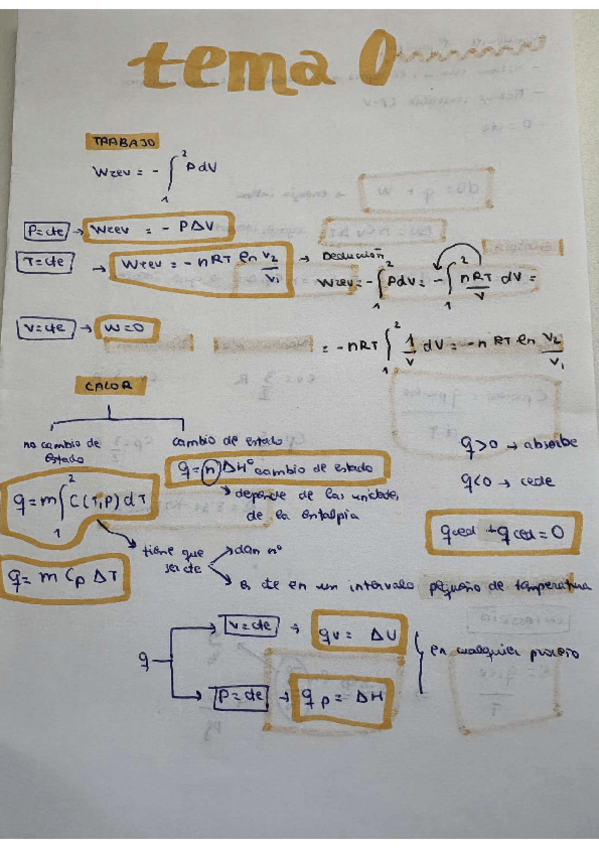 tema 0
TRABAJO
Wrev = - ∫₁² P dV
P=cte → Wrev = - PΔV
T=cte → Wrev = - nRT ln V₂/V₁ → Deducción
Wrev = - ∫₁² PdV = - ∫₁² nRT/V dV =
= - nRT ∫₁² 1/V dV = - n RT ln V₂/V₁
V=cte → W=0
CALOR
no cambio de estado
q = m ∫₁² C(T,P) dT
q = m Cp ΔT
cambio de estado
q = n ΔHº cambio de estado
→ depende de las unidades
de la entalpía
tiene que ser cte
→ dan nº
→ es cte en un intervalo pequeño de temperatura
q>0 → absorbe
q<0 → cede
qced + qced = 0
q
V=cte → qv = ΔU
P=cte → qp = ΔH
en cualquier proceso